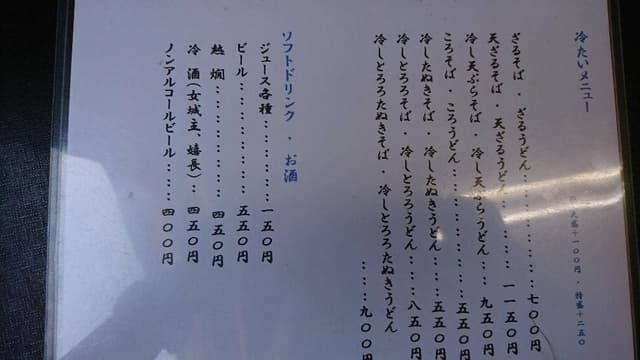 冷たいメニュー
大盛+100円・特盛+250
ざるそば・ざるうどん............七〇〇円
天ざるそば・天ざるうどん.........一一五〇円
冷し天ぷらそば・冷し天ぷらうどん....九五〇円
ころそば・ころうどん.............五五〇円
冷したぬきそば・冷したぬきうどん.....五五〇円
冷しとろろそば・冷しとろろうどん.....八五〇円
冷しとろろたぬきそば・冷しとろろたぬきうどん
......九〇〇円
ソフトドリンク・お酒
ジュース各種............一五〇円
ビール.............五五〇円
熱燗..............四五〇円
冷酒(女城主、嬉長)..四五〇円
ノンアルコールビール......四〇〇円